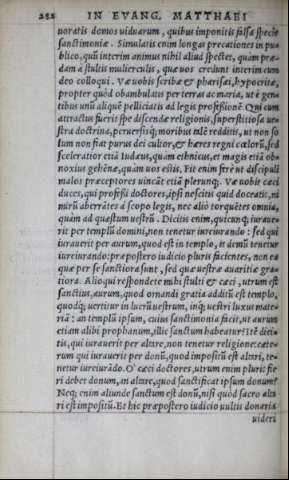 252 IN EVANG. MATTHAEI
uoratis domos uiduarum, quibus imponitis falsa specie
sanctimoniæ. Simulatis enim longas precationes in pu=
blico, quũ interim animus nihil aliud spectet, quàm præ-
dam à stultis mulierculis, quæ uos credunt interim cum
deo colloqui. Væ uobis scribæ & pharisæi, hypocritæ,
propter quòd obambulatis per terras ac maria, ut è gen=
tibus unũ aliquẽ pelliciatis ad legis professionẽ. Qui cum
attractus fuerit spe discendæ religionis, superstitiosa ue=
stra doctrina, peruersisq; moribus talẽ redditis, ut non so
lum non fiat purus dei cultor, & hæres regni cœlorũ, sed
sceleratior etiã Iudæus, quàm ethnicus, et magis etiã ob=
noxius gehẽnæ, quàm uos estis. Fit enim ferè ut discipuli
malos præceptores uincãt etiã plerunq;. Væ uobis cæci
duces, qui professi doctores, ipsi nescitis quid doceatis, ni
mirũ aberrãtes à scopo legis, nec aliò torquẽtes omnia,
quàm ad quæstum uestrũ. Dicitis enim, quicunq; iuraue=
rit per templũ domini, non tenetur iureiurando: sed qui
iurauerit per aurum, quod est in templo, is demũ tenetur
iureiurando: præpostero iudicio pluris facientes, non ea
quæ per se sanctiora sunt, sed quæ uestræ auaritiæ gra=
tiora. Alioqui respondete mihi stulti & cæci, utrum est
sanctius, aurum, quod ornandi gratia additũ est templo,
quodq; uertitur in lucrũ uestrum, inq; uestri luxus mate=
riã: an templũ ipsum, cuius sanctimonia facit, ut aurum
etiam alibi prophanum, illic sanctum habeatur? Itẽ dici=
tis, qui iurauerit per altare, non tenetur religione: cæte=
rum qui iurauerit per donũ, quod impositũ est altari, te=
netur iureiurãdo. O cæci doctores, utrum enim pluris fie
ri debet donum, an altare, quod sanctificat ipsum donum?
Neq; enim aliunde sanctum est donũ, nisi quòd sacro alta
ri est impositũ. Et hic præpostero iudicio uultis donaria
uideri